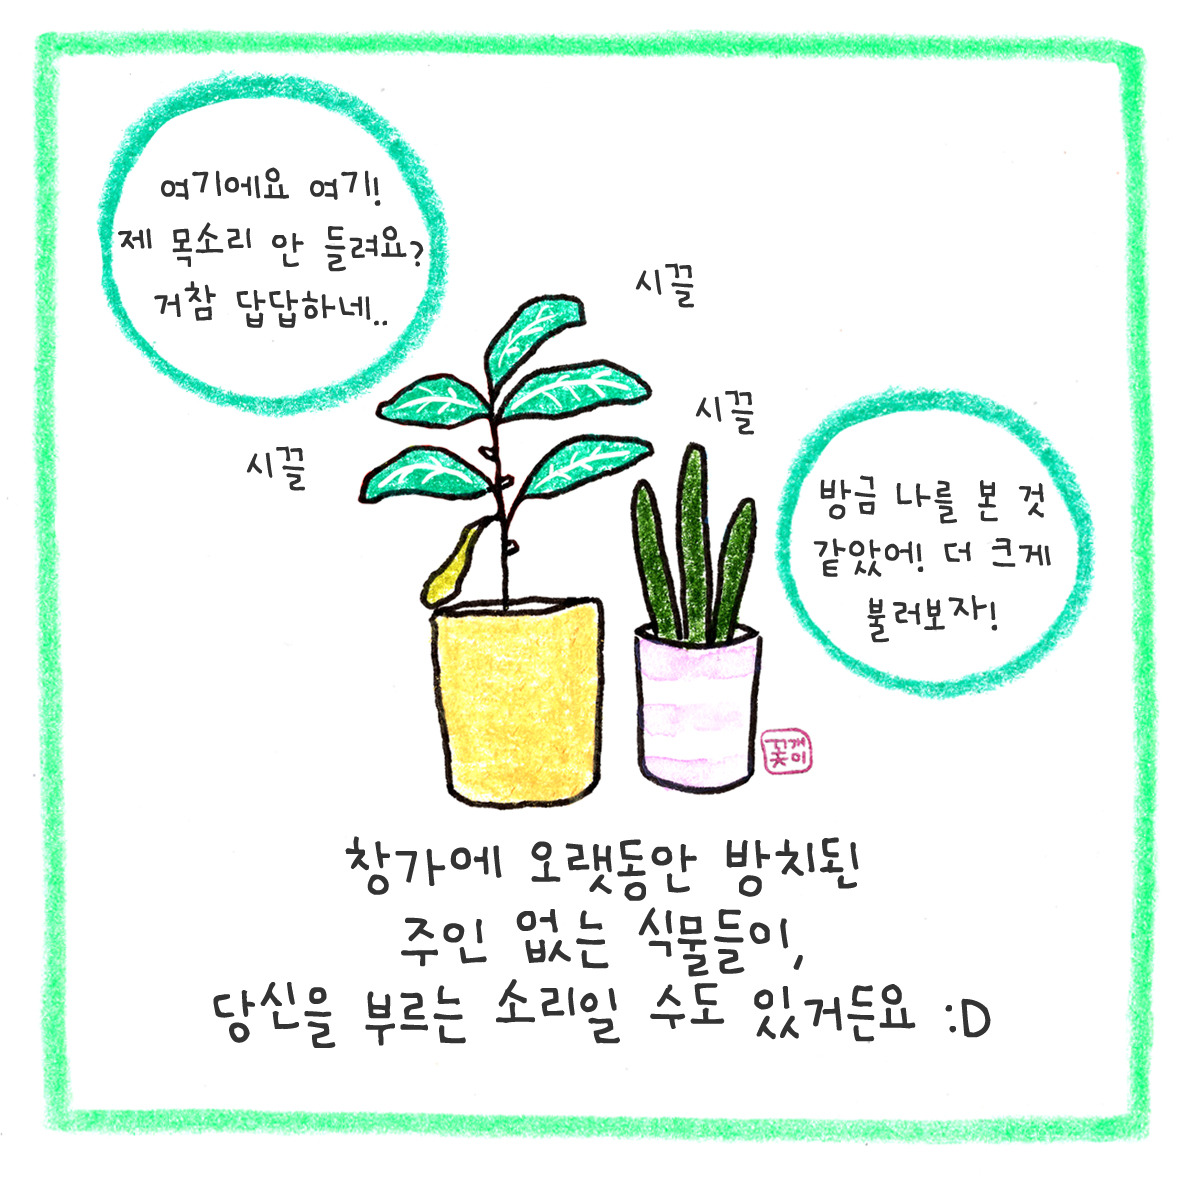 여기에요 여기!
제 목소리 안 들려요?
거참 답답하네..
시끌
시끌
시끌
방금 나를 본 것
같았어! 더 크게
불러보자!
꽃게이
창가에 오랫동안 방치된
주인 없는 식물들이,
당신을 부르는 소리일 수도 있거든요 :D